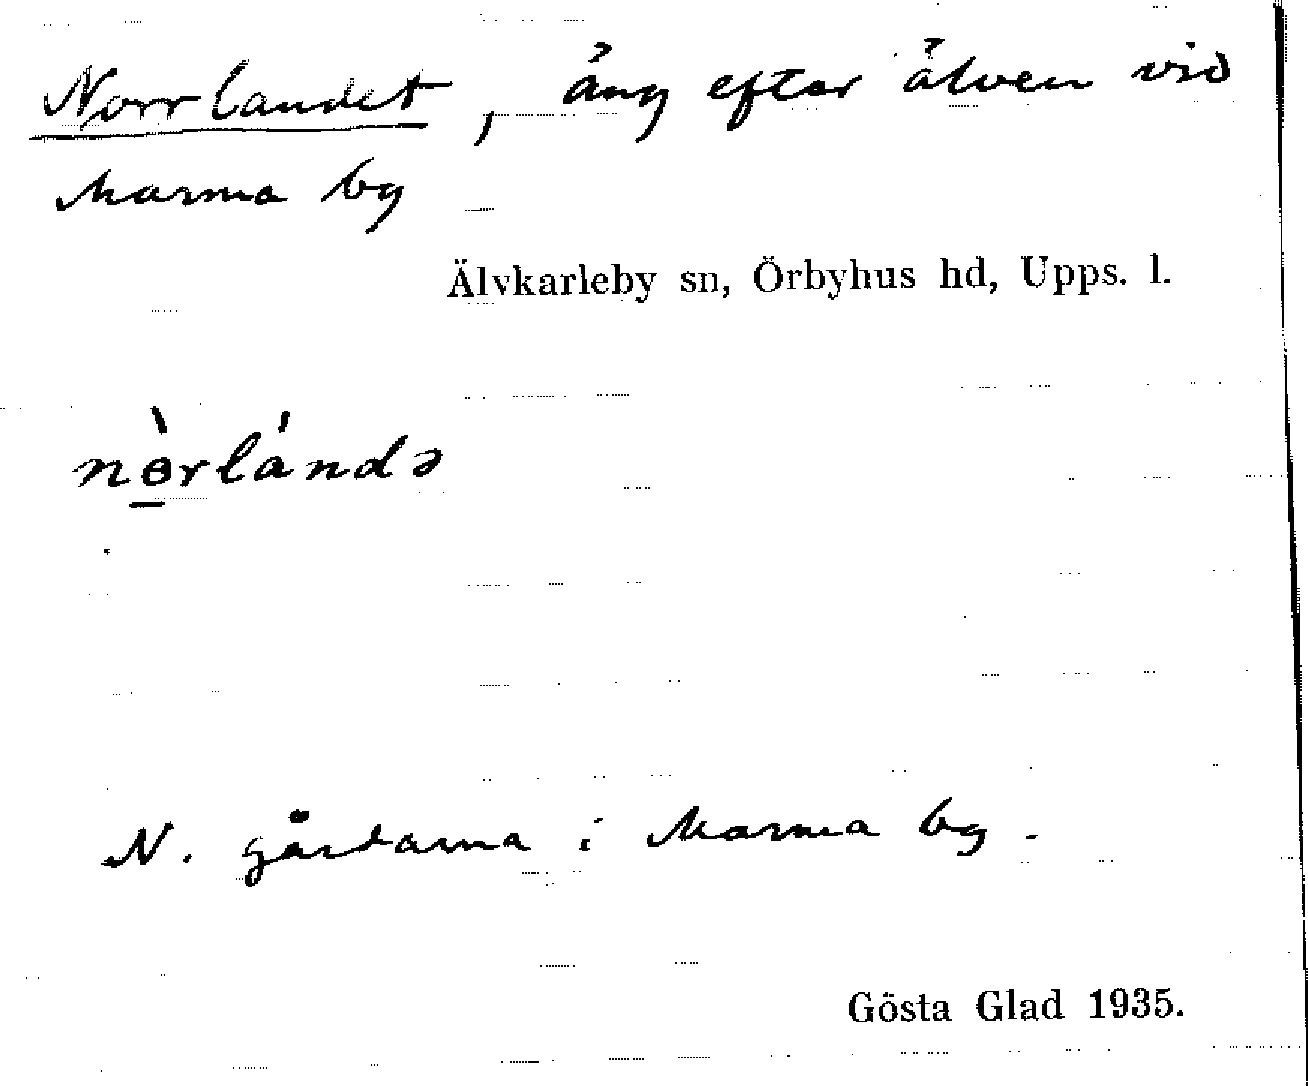 Norrlandet, äng efter älven vid
Marma by
Älvkarleby sn, Örbyhus hd, Upps. l.
nɵ̠̀rlándə
N. gårdarna i Marma by.
Gösta Glad 1935.